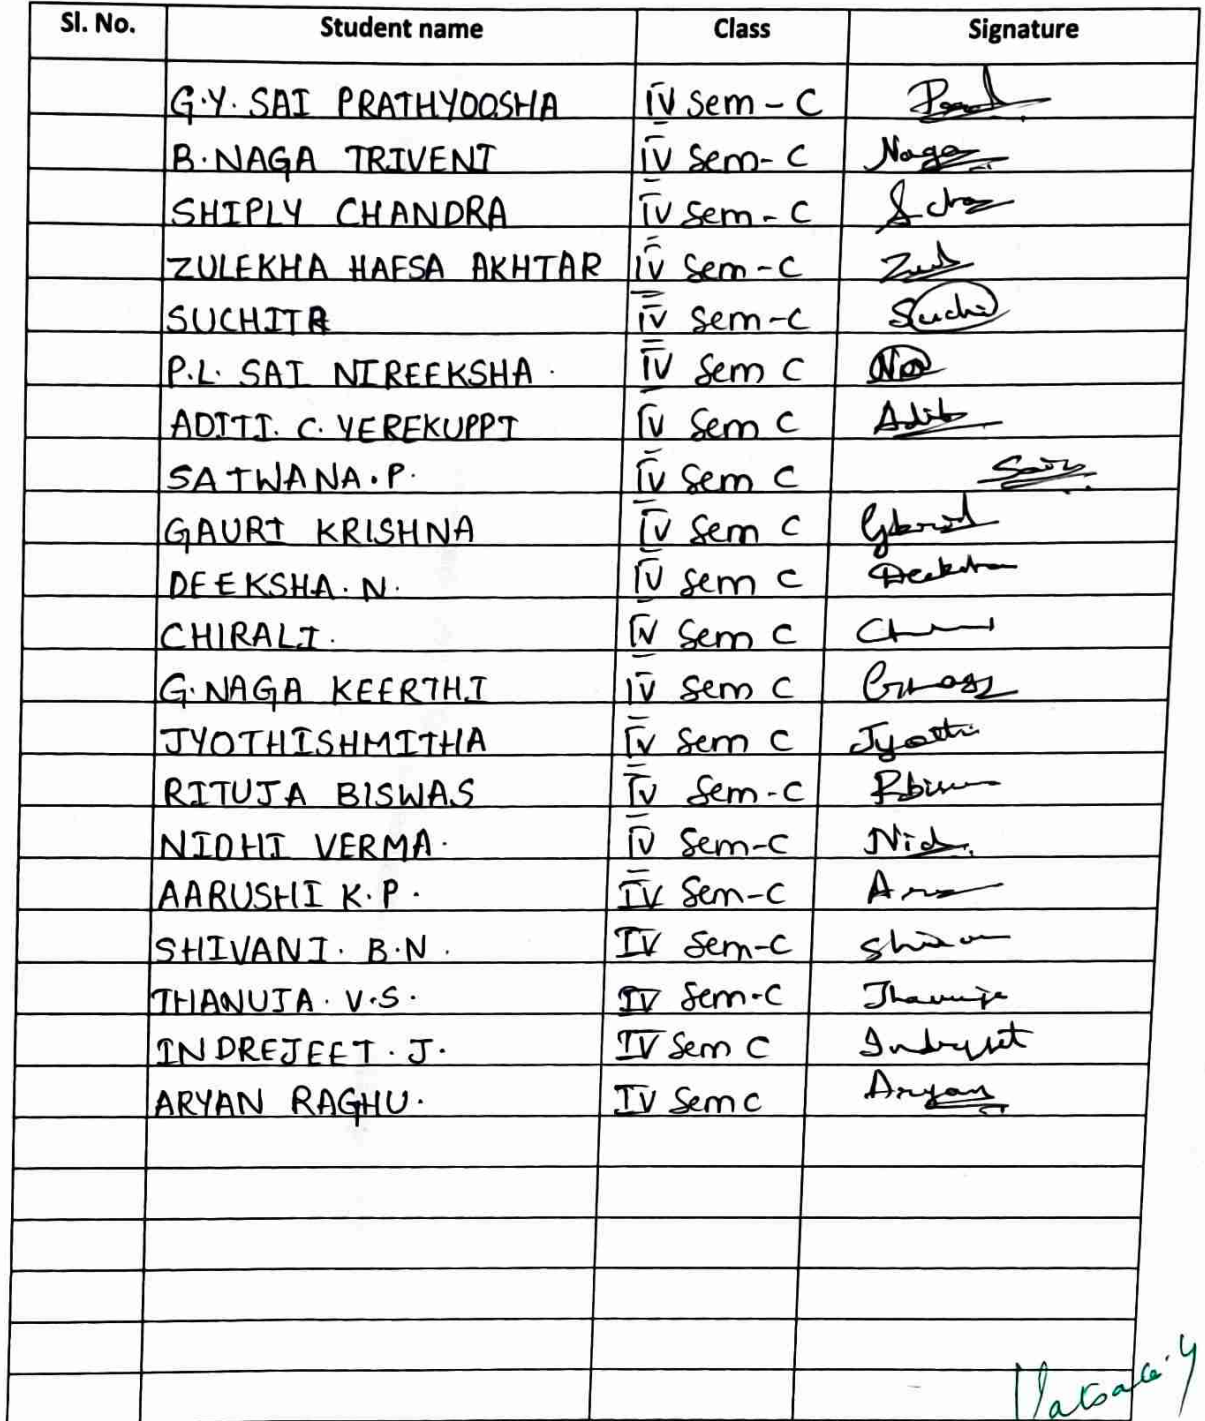 Sl. No. Student name Class Signature
G.Y. SAI PRATHYOOSHA IV Sem - C
B. NAGA TRIVENI IV Sem - C Naga
SHIPLY CHANDRA IV Sem - C
ZULEKHA HAFSA AKHTAR IV Sem - C
SUCHITA IV Sem - C Suchi
P.L. SAI NIREEKSHA. IV Sem C
ADITI. C. YEREKUPPI IV Sem C Aditi
SATWANA. P. IV Sem C
GAURI KRISHNA IV Sem C
DEEKSHA. N. IV Sem C Deeksha
CHIRALI. IV Sem C
G. NAGA KEERTHI IV Sem C
JYOTHISHMITHA IV Sem C Jyothi
RITUJA BISWAS IV Sem - C
NIDHI VERMA. IV Sem - C Nid
AARUSHI K.P. IV Sem - C
SHIVANI. B.N. IV Sem - C
THANUJA. V.S. IV Sem - C Thanuja
INDREJEET. J. IV Sem C Indrejeet
ARYAN RAGHU. IV Sem C Aryan